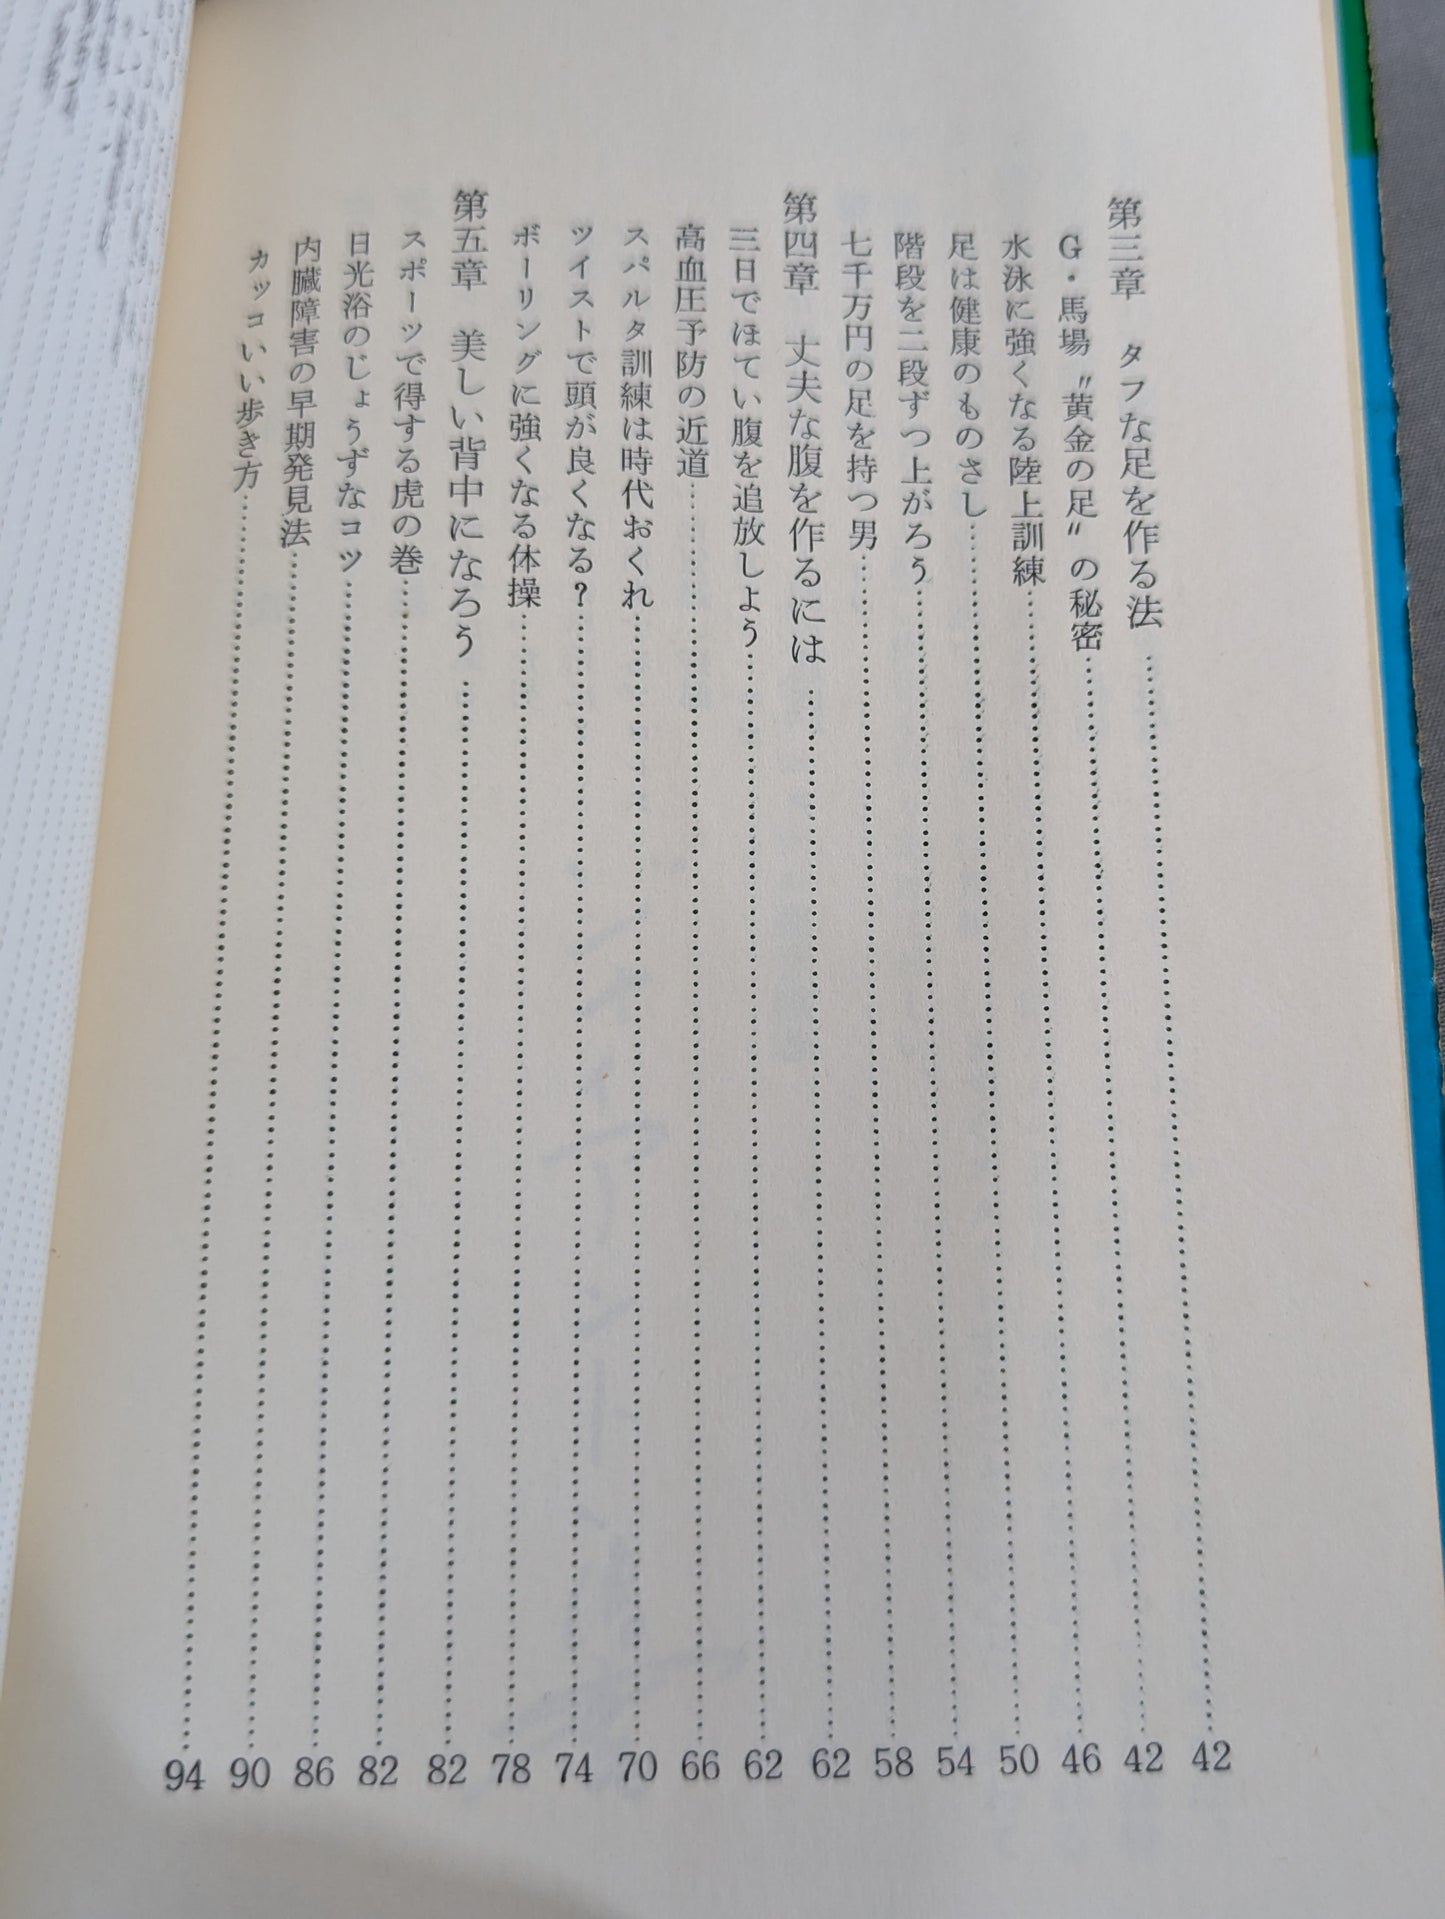 第三章　タフな足を作る法……42
G・馬場〝黄金の足〟の秘密……42
水泳に強くなる陸上訓練……46
足は健康のものさし……50
階段を二段ずつ上がろう……54
七千万円の足を持つ男……58
第四章　丈夫な腹を作るには……62
三日でほてい腹を追放しよう……62
高血圧予防の近道……66
スパルタ訓練は時代おくれ……70
ツイストで頭が良くなる?……74
ボーリングに強くなる体操……78
第五章　美しい背中になろう……82
スポーツで得する虎の巻……82
日光浴のじょうずなコツ……86
内臓障害の早期発見法……90
カッコいい歩き方……94